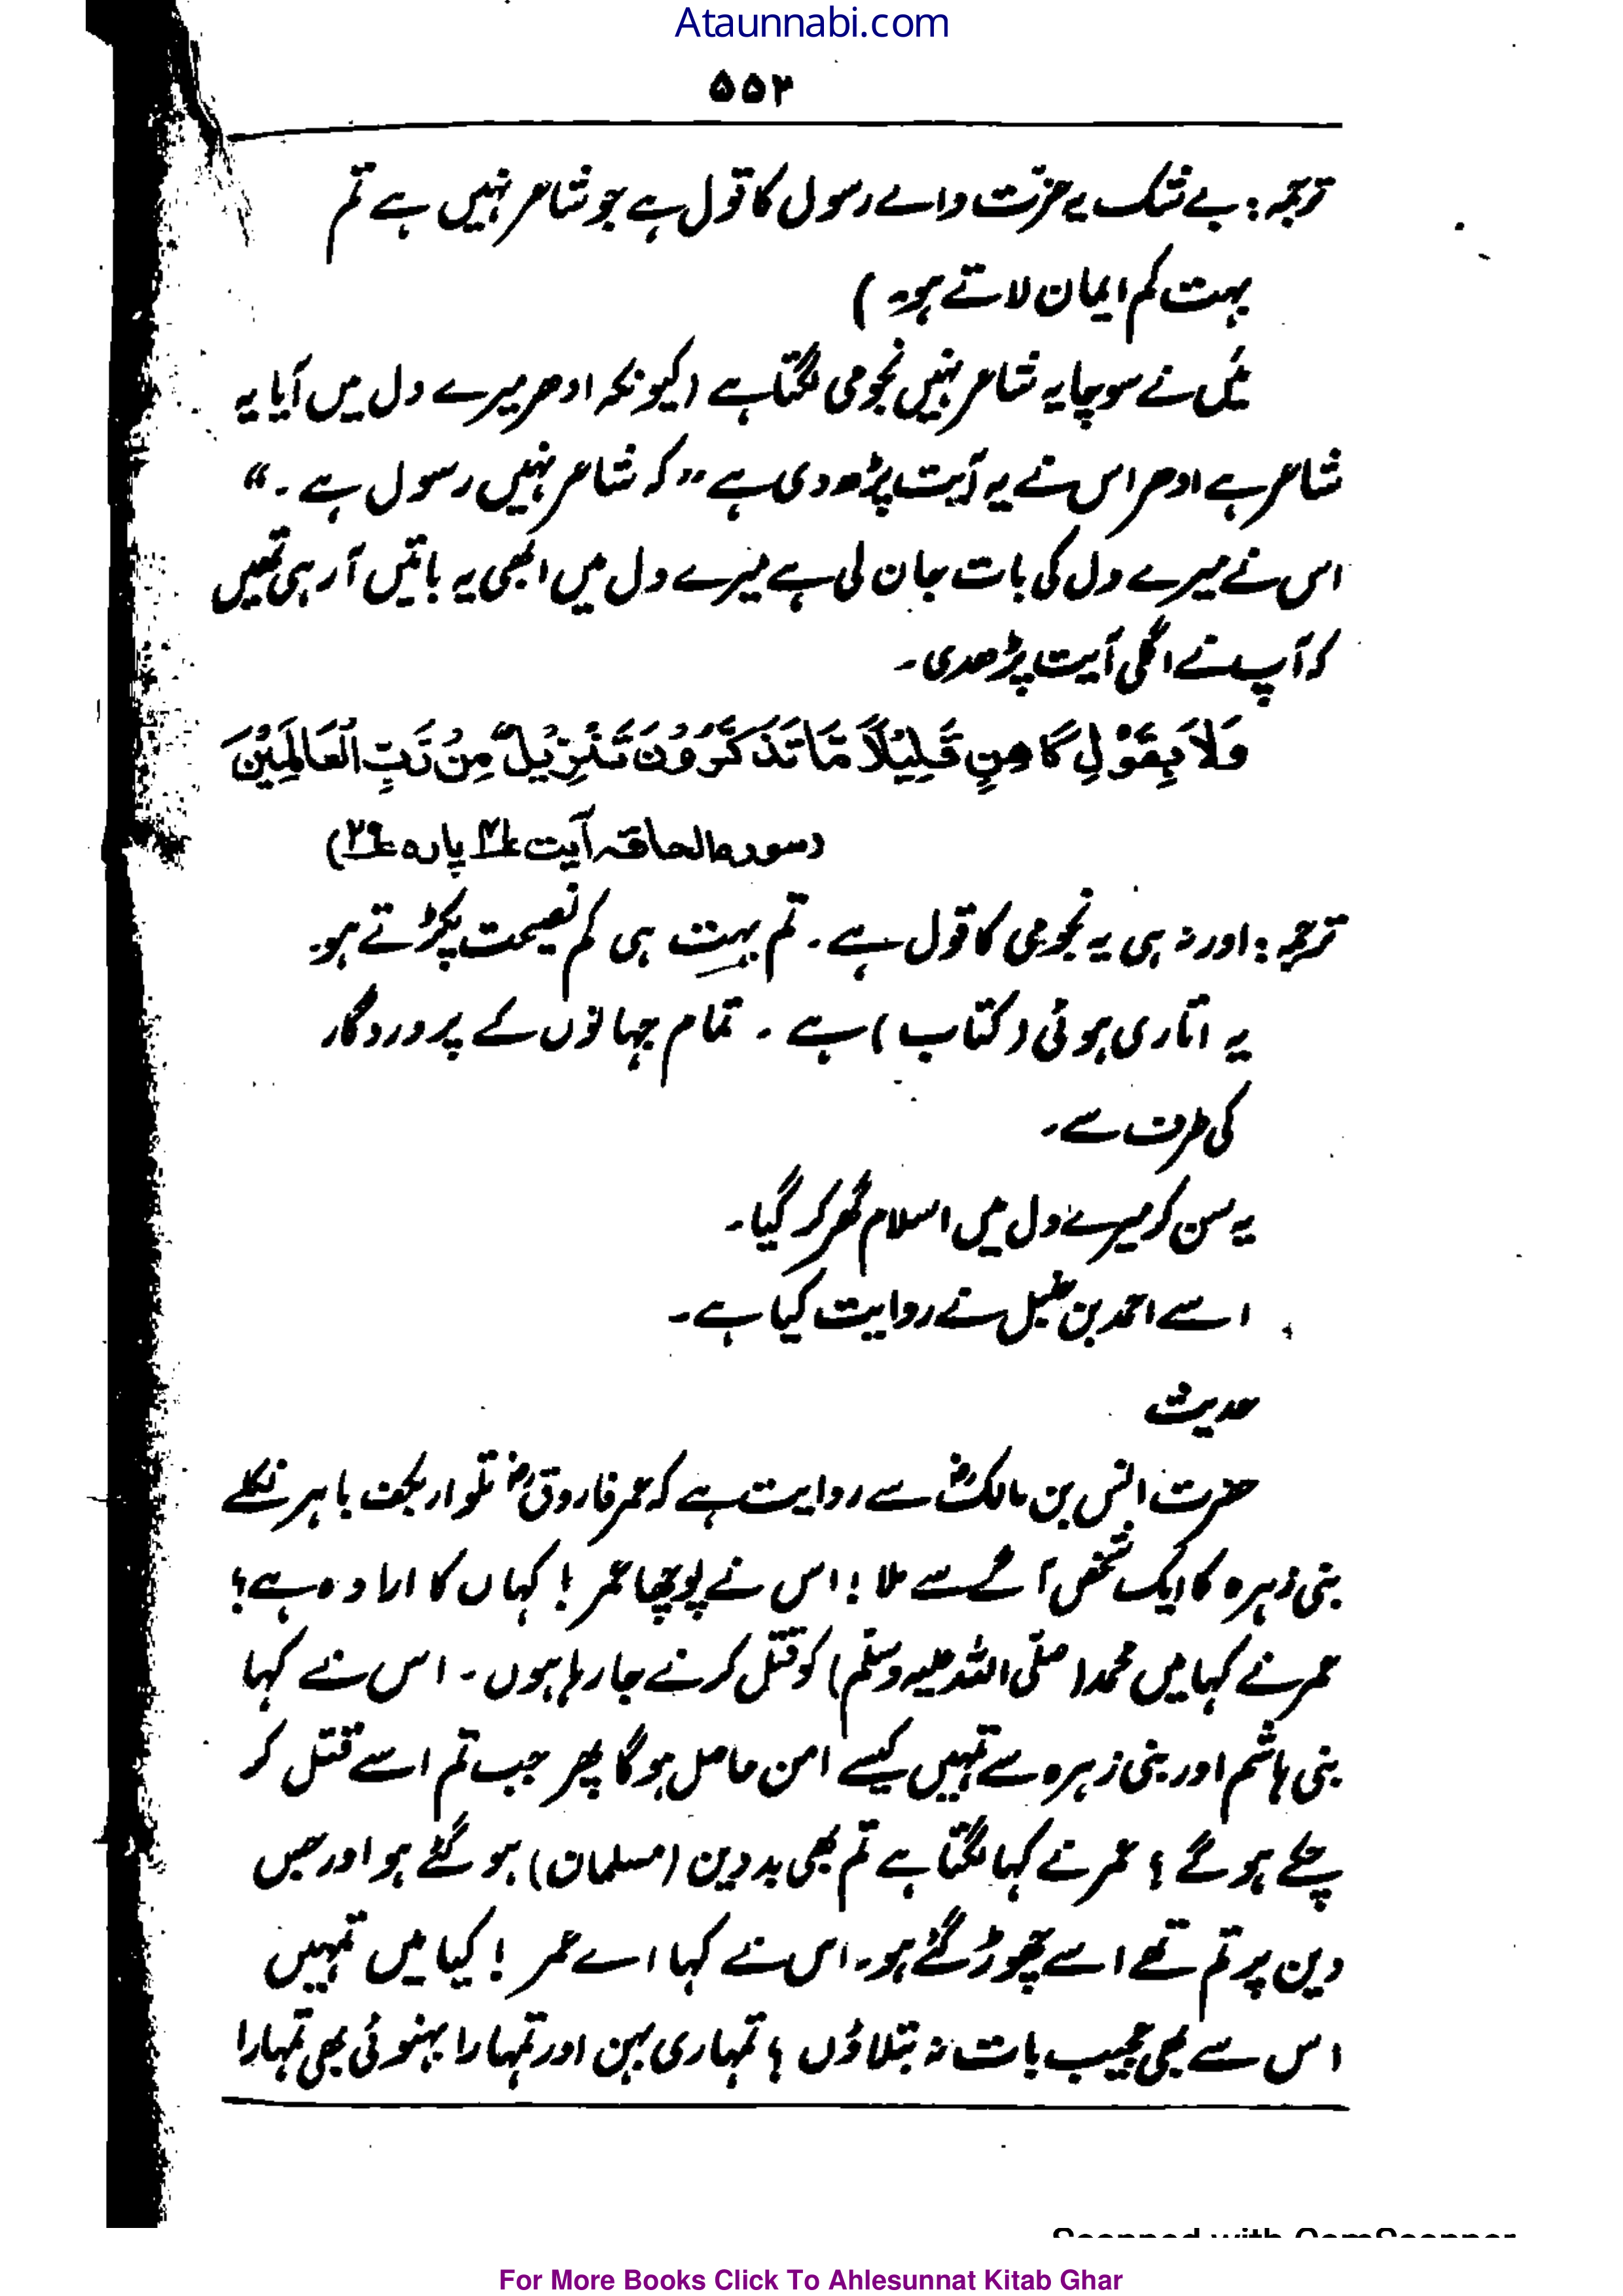 Ataunnabi.com
۵۵۲
ترجمہ : بے شک یہ عزّت والے رسول کا قول ہے جو شاعر نہیں ہے تم
بہت کم ایمان لاتے ہو۔ )
مَیں نے سوچا یہ شاعر نہیں نجومی لگتا ہے (کیونکہ ادھر میرے دل میں آیا یہ
شاعر ہے ادھر اس نے یہ آیت پڑھ دی ہے ”کہ شاعر نہیں رسول ہے ۔“
اس نے میرے دل کی بات جان لی ہے میرے دل میں ابھی یہ باتیں آ رہی تھیں
کہ آپ نے اگلی آیت پڑھ دی۔
وَلاَ بِقَوْلِ كَاهِنٍ قَلِيْلاً مَّا تَذَكَّرُوْنَ تَنْزِيْلٌ مِنْ رَبِّ الْعَالَمِيْنَ
(سورہ الحاقہ آیت پارہ ۲۹)
ترجمہ : اور نہ ہی یہ نجومی کا قول ہے ۔ تم بہت ہی کم نصیحت پکڑتے ہو۔
یہ اتاری ہوئی (کتاب) ہے ۔ تمام جہانوں کے پروردگار
کی طرف سے ۔
یہ سن کر میرے دل میں اسلام گھر کر گیا۔
اسے احمد بن حنبل نے روایت کیا ہے۔
حدیث
حضرت انس بن مالکؓ سے روایت ہے کہ عمر فاروقؓ تلوار بکف باہر نکلے
بنی زہرہ کا ایک شخص آگے سے ملا ! اس نے پوچھا عمر ! کہاں کا ارادہ ہے؟
عمر نے کہا میں محمد (صلّی اللہ علیہ وسلّم) کو قتل کرنے جا رہا ہوں ۔ اس نے کہا
بنی ہاشم اور بنی زہرہ سے تمہیں کیسے امن حاصل ہوگا پھر جب تم اسے قتل کر
چکے ہو گے ؟ عمر نے کہا لگتا ہے تم بھی بد دین (مسلمان) ہو گئے ہو اور جس
دین پر تم تھے اسے چھوڑ گئے ہو۔ اس نے کہا اے عمر ! کیا میں تمہیں
اس سے بھی عجیب بات نہ بتلاؤں ؟ تمہاری بہن اور تمہارا بہنوئی بھی تمہارا
Scanned with CamScanner
For More Books Click To Ahlesunnat Kitab Ghar